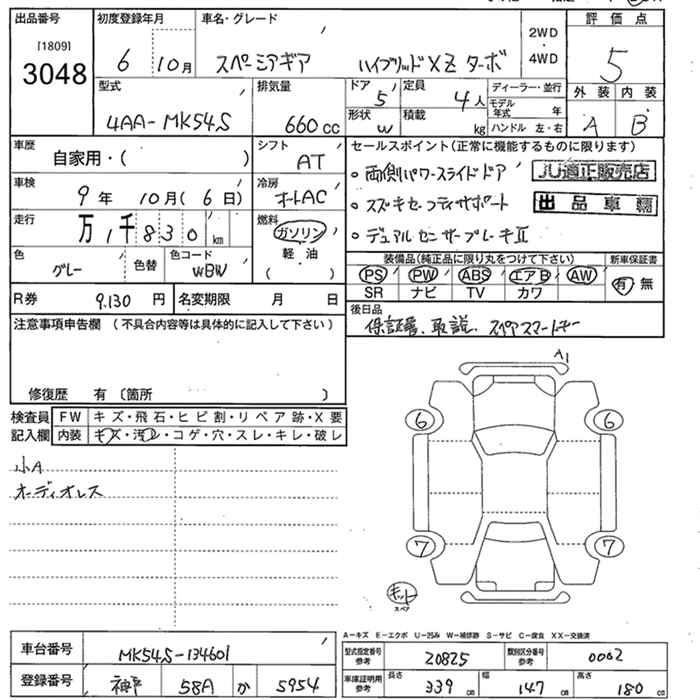 出品番号 初度登録年月 車名・グレード 評価点
[1809]
3048
6 10月 スペーシアギア ハイブリッドXZ ターボ
2WD
・
4WD
5
型式 排気量 ドア 定員 ディーラー・並行 外装 内装
4AA-MK54S 660cc 5 4人
モデル年式 年
形状 積載
W kg ハンドル 左・右 A B
車歴 自家用・( ) シフト AT
セールスポイント(正常に機能するものに限ります)
車検 9年 10月(6日) 冷房 オートAC
。両側パワースライドドア JU適正販売店
。スズキセーフティサポート 出品車輌
。デュアルセンサーブレーキII
走行 万 1千 830 km 燃料 ガソリン
軽油
( )
色 グレー 色替 色コード WBW
装備品(純正品に限り丸をつけて下さい) 新車保証書
PS PW ABS エアB AW 有・無
SR ナビ TV カワ
R券 9,130円 名変期限 月 日
後日品
保証書、取説、スペアスマートキー
注意事項申告欄(不具合内容等は具体的に記入して下さい)
修復歴 有〔箇所 〕
検査員 FW キズ・飛石・ヒビ割・リペア跡・X要
記入欄 内装 キズ・汚レ・コゲ・穴・スレ・キレ・破レ
小A
オーディオレス
A1
6 6
7 7
キット
スペア
A-キズ E-エクボ U-凹み W-補修跡 S-サビ C-腐食 XX-交換済
車台番号 MK54S-134601
型式指定番号 参考 20825 類別区分番号 参考 0002
登録番号 神戸 58A か 5954
車庫証明用 参考 長さ 339cm 幅 147cm 高さ 180cm